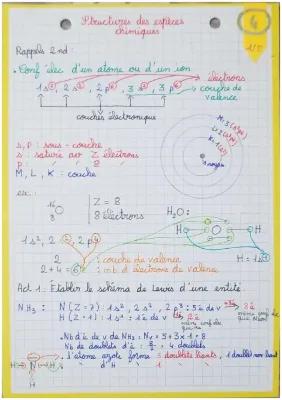 Structures des espèces
chimiques
4
1/2
Rappels 2nd :
• Conf élec d'un atome ou d'un ion
électrons
1s², 2s², 2p⁶, 3s², 3p⁶
couche de
valence
couches électronique
s, p : sous-couche
s : saturé avec 2 électrons
p : " " 8 "
M, L, K : couche
noyau
ex :
Z = 8
8 électrons
H₂O :
1s², 2s², 2p⁴
H
O
H
2 : couche de valence
2+4 = 6 : nb d'électrons de valence
H = 1s¹
Act 1 : Etablir le schéma de Lewis d'une entité
NH₃ : N (Z=7) : 1s², 2s², 2p³ : 5é de v
H (Z=1) : 1s¹ : 1é de v
• Nb d'é de v de NH₃ : Nv = 5+3×1 = 8
Nb de doublets d'é : 8/2 = 4 doublets
• L'atome azote forme 3 doublets liants, 1 doublet non liant
" d'H " 1 "
H
N
H
H